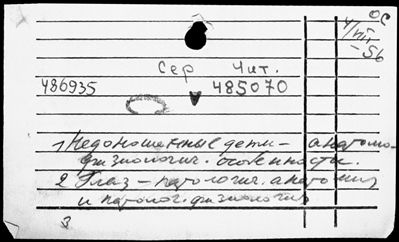 ОС
4/VII
-56
Сер Чит.
486935 485070
1 Недоношенные дети - анатомо-
физиологич. особенности.
2 Глаз - патологич. анатомия
и патолог. физиология
3